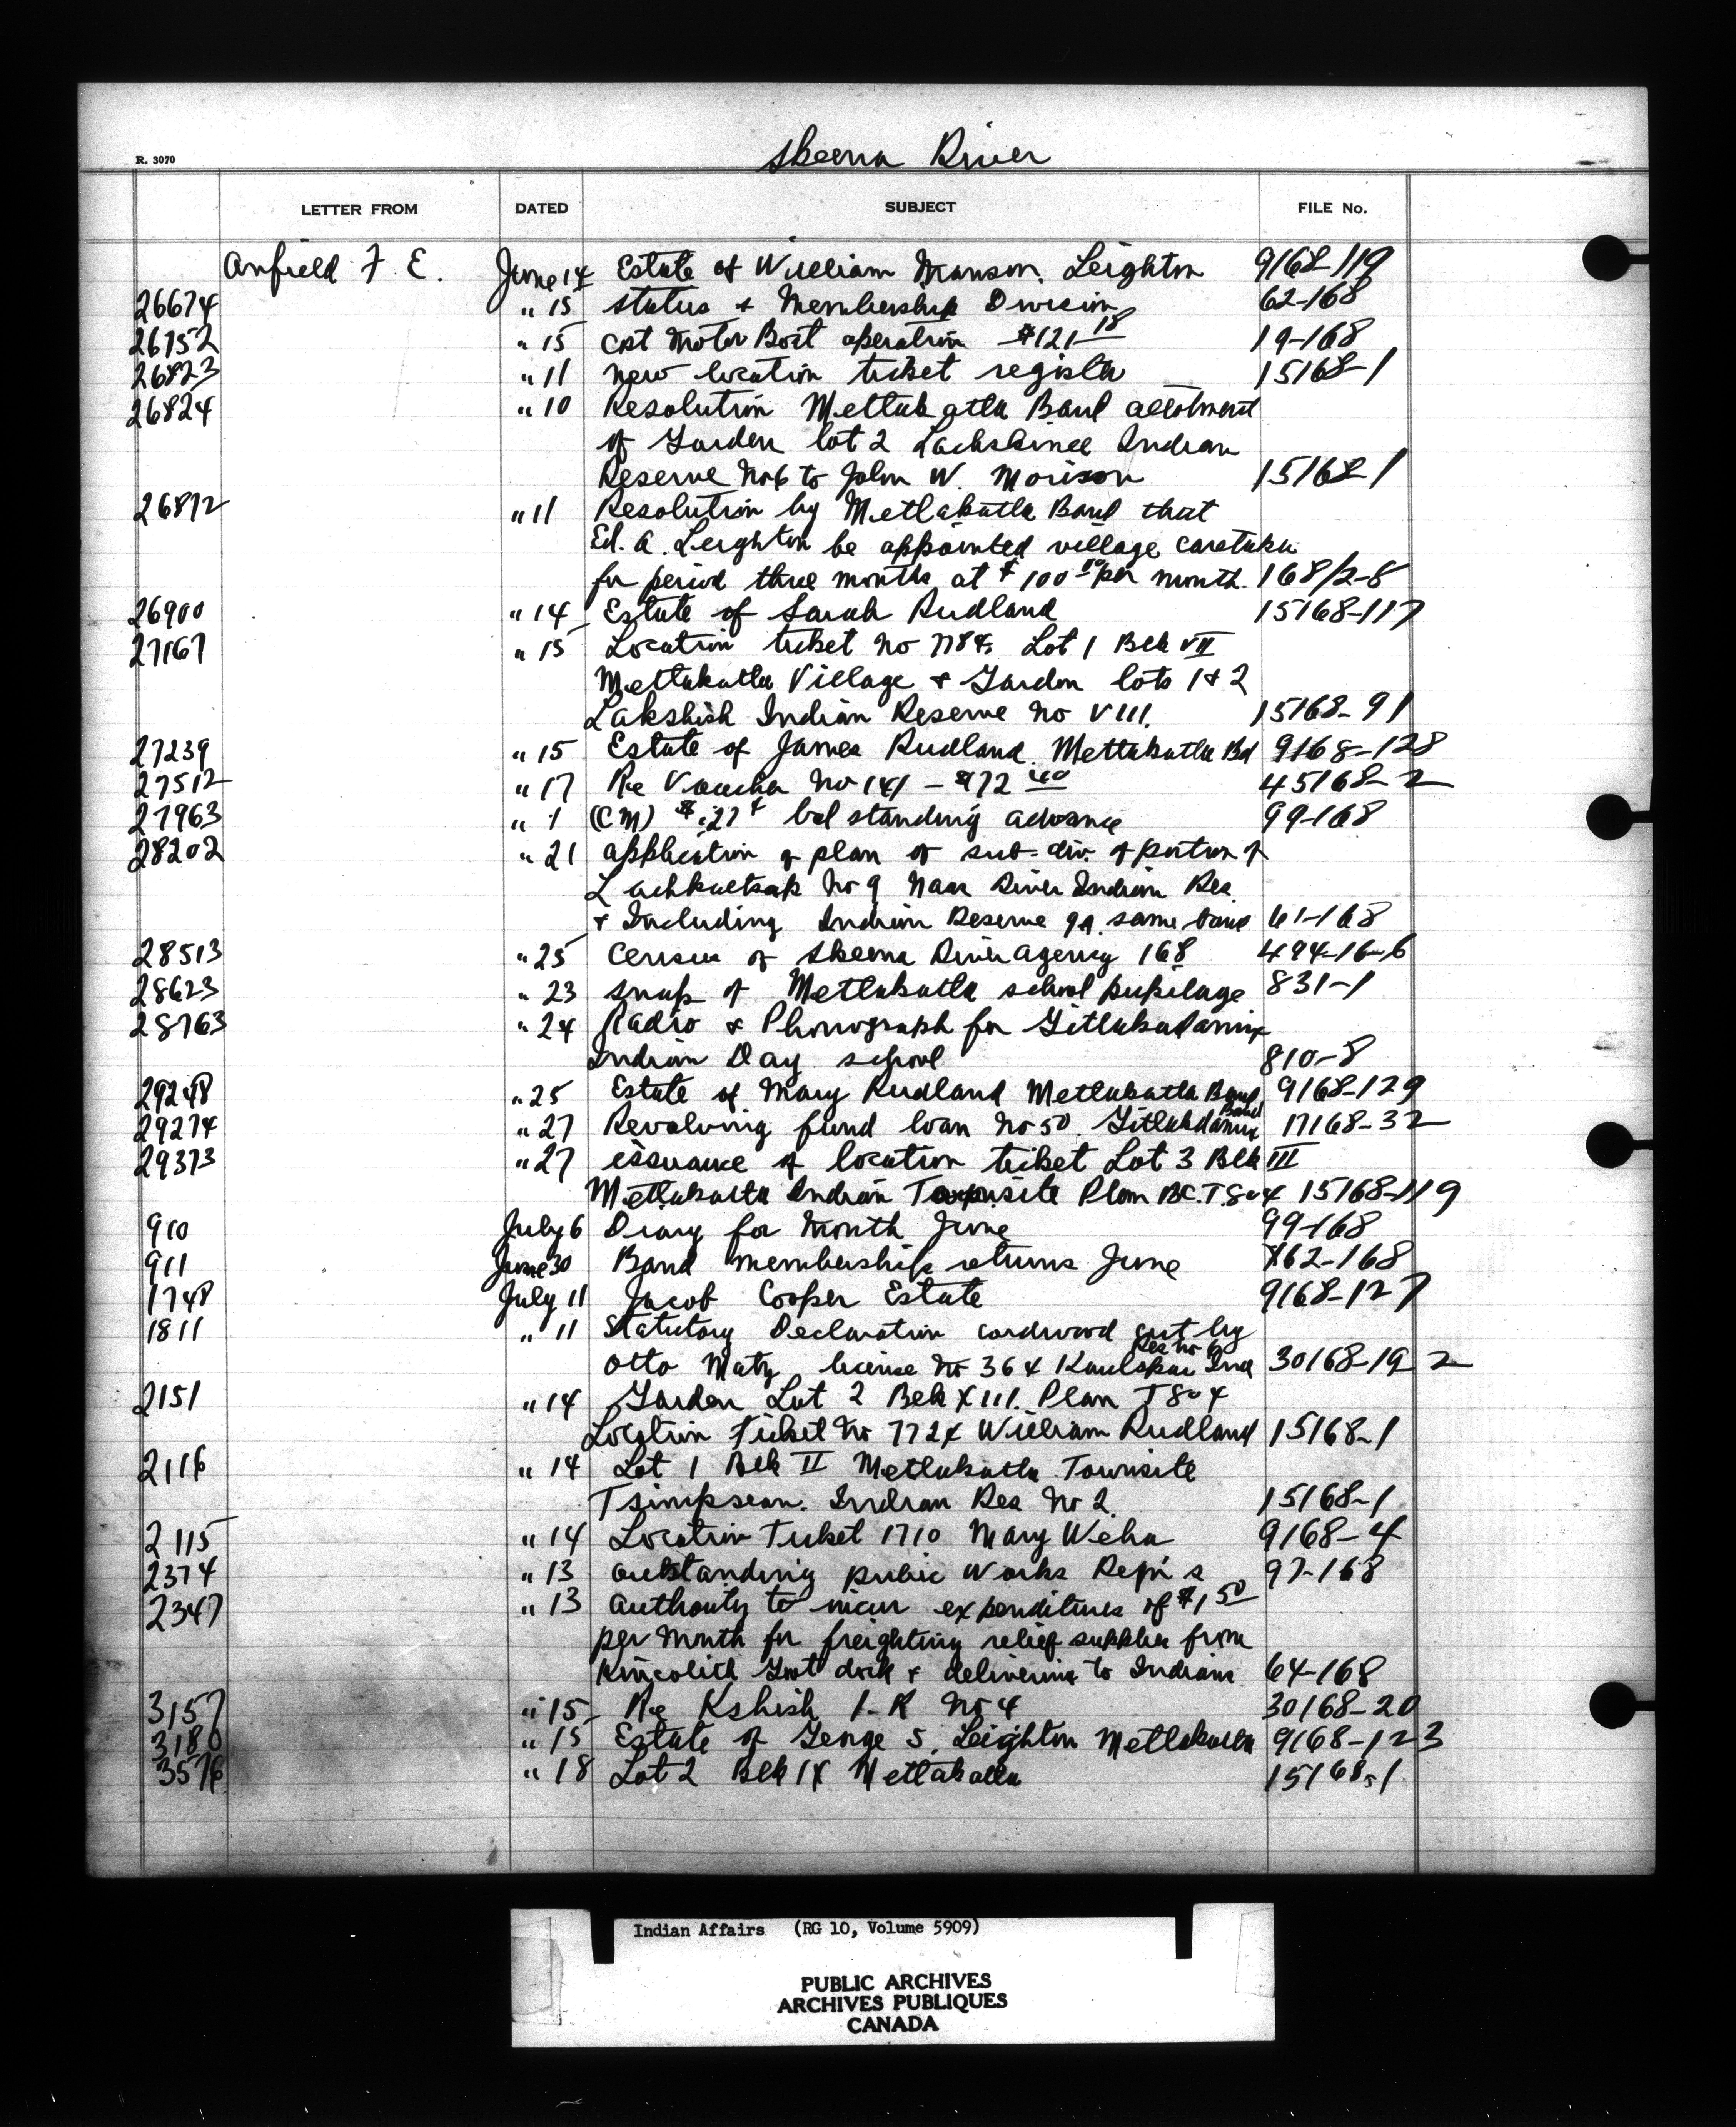 Skeena River
R. 3070
LETTER FROM DATED SUBJECT FILE No.
Anfield F. E. June 14 Estate of William Manson Leighton 9168-119
26674 " 15 Status & Membership Division 62-168
26752 " 15 Cost Motor Boat operation $121 18 19-168
26823 " 11 New location ticket register 15168-1
26824 " 10 Resolution Metlakatla Band allotment
of Garden lot 2 Indian
Reserve No 6 to John W. Morison 15168-1
26872 " 11 Resolution by Metlakatla Band that
Ed. A. Leighton be appointed village caretaker
for period three months at $100 00 per month. 168/2-8
26900 " 14 Estate of Sarah Rudland 15168-117
27167 " 15 Location ticket No 7784 Lot 1 Blk VII
Metlakatla Village & Garden lots 1 & 2
Lakshish Indian Reserve No VIII. 15168-91
27239 " 15 Estate of James Rudland. Metlakatla Bd 9168-128
27512 " 17 Re Voucher No 141 - $72 40 45168-2
27963 " 1 (CM) bal standing advance 99-168
28202 " 21 application & plan of sub-div. of portion of
Lachkaltsap No 9 Naas River Indian Res
& Including Indian Reserve 9A same band 61-168
28513 " 25 Census of Skeena River Agency 168 494-16-6
28623 " 23 snaps of Metlakatla school pupilage 831-1
28763 " 24 Radio & Phonograph for Gitlakadamix
Indian Day school 810-8
29248 " 25 Estate of Mary Rudland Metlakatla Band 9168-129
29274 " 27 Revolving fund loan No 50. Gitlakdamix Band 17168-32
29373 " 27 issuance of location ticket Lot 3 Blk III
Metlakatla Indian Townsite Plan BC. T804 15168-119
910 July 6 Diary for Month June 99-168
911 June 30 Band membership returns June 162-168
1748 July 11 Jacob Cooper Estate 9168-127
1811 " 11 Statutory Declaration cordwood cut by
Otto Maty license No 364 Ind Res No 6 30168-19 2
2151 " 14 Garden Lot 2 Blk XIII. Plan T804
Location Ticket No 7724 William Rudland 15168-1
2116 " 14 Lot 1 Blk II Metlakatla Townsite
Tsimpsean. Indian Res No 2. 15168-1
2115 " 14 Location Ticket 1710 Mary 9168-4
2374 " 13 outstanding public Works Repts 97-168
2347 " 13 authority to incur expenditures of $1 50
per month for freighting relief supplies from
Kincolith Govt dock & delivering to Indians 64-168
3157 " 15 Re Kshish I. R No 4 30168-20
3180 " 15 Estate of George S. Leighton Metlakatla 9168-123
3576 " 18 Lot 2 Blk IX Metlakatla 15168-1
Indian Affairs (RG 10, Volume 5909)
PUBLIC ARCHIVES
ARCHIVES PUBLIQUES
CANADA